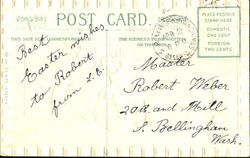 POST CARD.
THIS SIDE FOR CORRESPONDENCE
THE ADDRESS
PLACE POSTAGE
STAMP HERE
DOMESTIC
ONE CENT
FOREIGN
TWO CENTS
Best
Easter wishes
to Robert
from L.E.
Master
Robert Weber
20th and Mill
S. Bellingham
Wash.